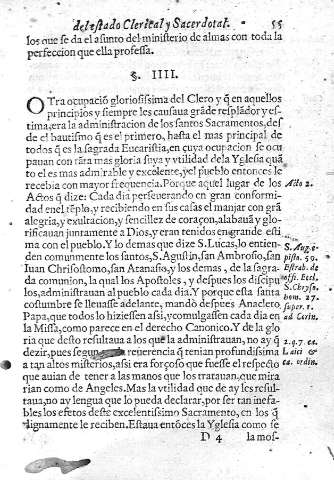 del estado Clerical y Sacerdotal. 55
los que se da el asunto del ministerio de almas con toda la
perfeccion que ella professa.
§. IIII.
OTra ocupaciõ gloriosissima del Clero y q̃ en aquellos
principios y siempre les causaua grãde resplãdor y es-
tima, era la administracion de los santos Sacramentos, des-
de el bautismo q̃ es el primero, hasta el mas principal de
todos q̃ es la sagrada Eucaristia, en cuya ocupacion se ocu
pauan con tãta mas gloria suya y vtilidad dela Yglesia quã
to el es mas admirable y excelente, y el pueblo entonces le
recebia con mayor frequencia. Porque aquel lugar de los
Actos q̃ dize: Cada dia perseuerando en gran conformi-
dad enel tẽplo, y recibiendo en sus casas el manjar con grã
alegria, y exultacion, y sencillez de coraçon, alabauã y glo-
rificauan juntamente a Dios, y eran tenidos en grande esti
ma con el pueblo. Y lo demas que dize S. Lucas, lo entien-
den comunmente los santos, S. Agustin, san Ambrosio, san
Iuan Chrisostomo, san Atanasio, y los demas, de la sagra-
da comunion, la qual los Apostoles, y despues los discipu
los, administrauan al pueblo cada dia. Y porque esta santa
costumbre se lleuasse adelante, mandò despues Anacleto
Papa, que todos lo hiziessen assi, y comulgassen cada dia en
la Missa, como parece en el derecho Canonico. Y de la glo
ria que desto resultaua a los que la administrauan, no ay q̃
dezir, pues segun reuerencia q̃ tenian profundissima
a tan altos misterios, assi era forçoso que fuesse el respeto
que auian de tener a las manos que los tratauan, que mirar
rian como de Angeles. Mas la vtilidad que de ay les resul-
taua, no ay lengua que lo pueda declarar, por ser tan inefa-
bles los efetos deste excelentissimo Sacramento, en los q̃
dignamente le reciben. Estaua entõces la Yglesia como se
D 4 la mos-
Acto 2.
S. Aug. e-
pist. 59.
hom. 27.
2. q. 7. ca.